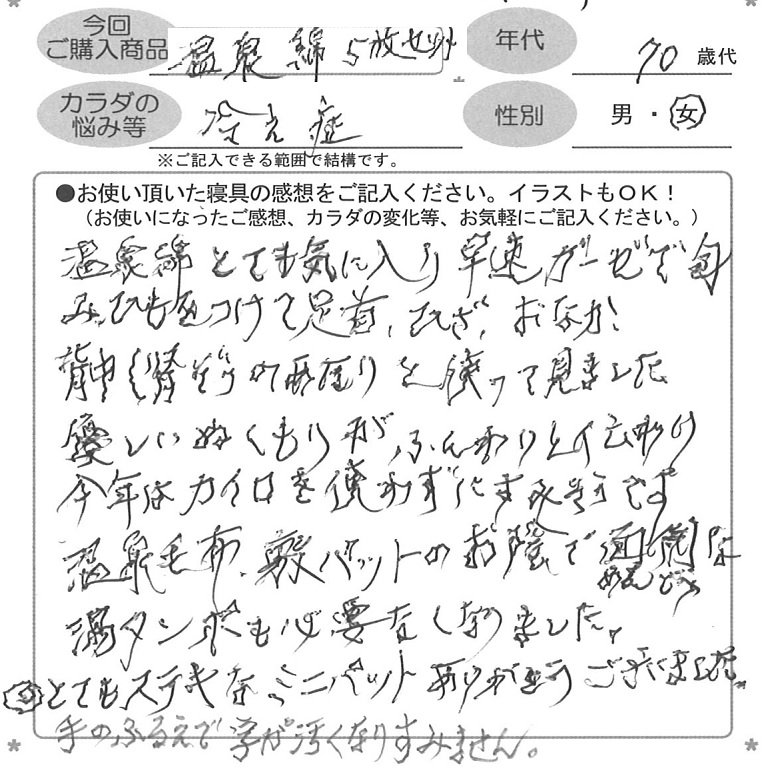 今回
ご購入商品 温泉綿 5枚セット
年代 70 歳代
カラダの
悩み等 冷え症
性別 男・女
※ご記入できる範囲で結構です。
●お使い頂いた寝具の感想をご記入ください。イラストもOK！
(お使いになったご感想、カラダの変化等、お気軽にご記入ください。)
温泉綿とても気に入り早速ガーゼで包
みひもをつけて足首、ひざ、おなか、
背中(腎ぞうの所辺り)を使って見ました
優しいぬくもりがふんわりと広がり
今年はカイロを使わずにすみそうです
温泉毛布、敷パットのお陰で面倒な
めんどう
湯タンポも必要なくなりました。
とてもステキなミニパットありがとうございました。
手のふるえで字が汚くなりすみません。